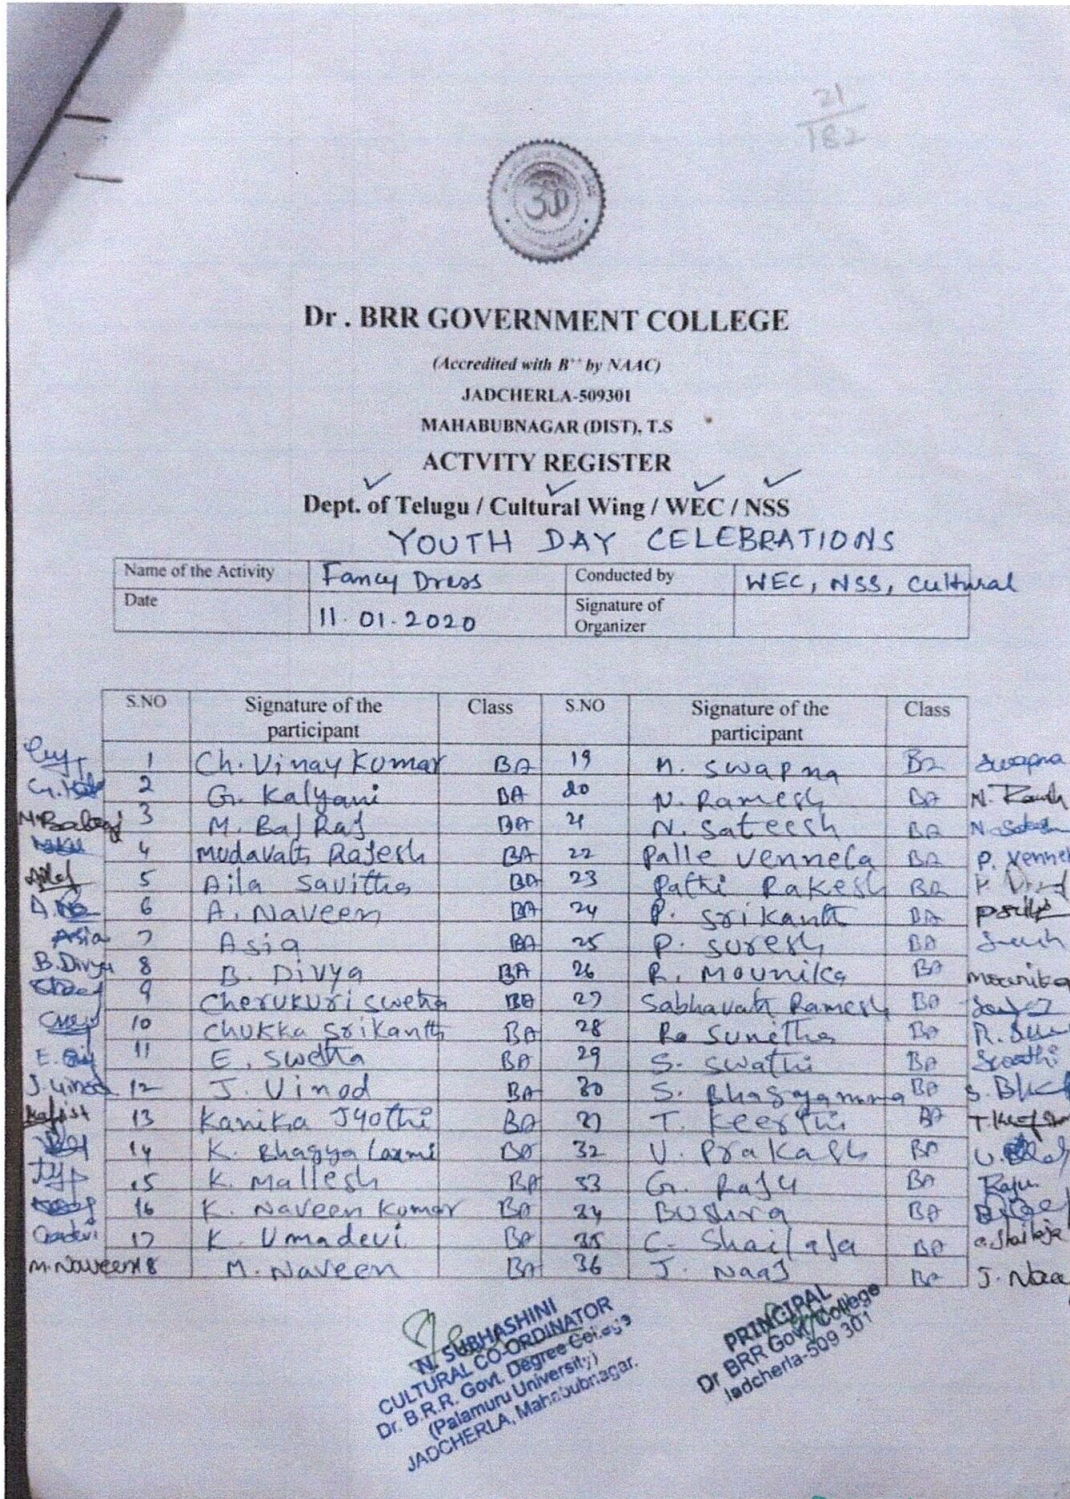 21
182
Dr . BRR GOVERNMENT COLLEGE
(Accredited with B++ by NAAC)
JADCHERLA-509301
MAHABUBNAGAR (DIST), T.S
ACTVITY REGISTER
Dept. of Telugu / Cultural Wing / WEC / NSS
YOUTH DAY CELEBRATIONS
Name of the Activity Fancy Dress Conducted by WEC, NSS, Cultural
Date 11.01.2020 Signature of Organizer
S.NO Signature of the participant Class S.NO Signature of the participant Class
1 Ch. Vinay Kumar BA 19 M. Swapna BA Swapna
2 G. Kalyani BA 20 N. Ramesh BA N.
3 M. Bal Raj BA 21 N. Sateesh BA
4 Mudavath Rajesh BA 22 Palle Vennela BA P. Vennel
5 Aila Savitha BA 23 Pathi Rakesh BA
6 A. Naveen BA 24 P. Srikanth BA
Asia 7 Asia BA 25 P. Suresh BA
B.Divya 8 B. Divya BA 26 R. Mounika BA mounika
9 Cherukuri Swetha BA 27 Sabhavath Ramesh BA
10 Chukka Srikanth BA 28 Sunitha BA
11 E. Swetha BA 29 S. Swathi BA Swathi
J. Vinod 12 J. Vinod BA 30 S. Bhagyamma BA
13 Kanika Jyothi BA 31 T. Keerthi BA
14 K. Bhagya Laxmi BA 32 U. Prakash BA
15 K. Mallesh BA 33 G. Raju BA Raju
16 K. Naveen Kumar BA 34 Bushra BA
17 K. Umadevi BA 35 C. Shailaja BA
M. Naveen 18 M. Naveen BA 36 J. Naaj BA J. Naa
N. SUBHASHINI
CULTURAL CO-ORDINATOR
Dr. B.R.R. Govt. Degree College
(Palamuru University)
JADCHERLA, Mahabubnagar.
PRINCIPAL
Dr BRR Govt College
Jadcherla-509 301